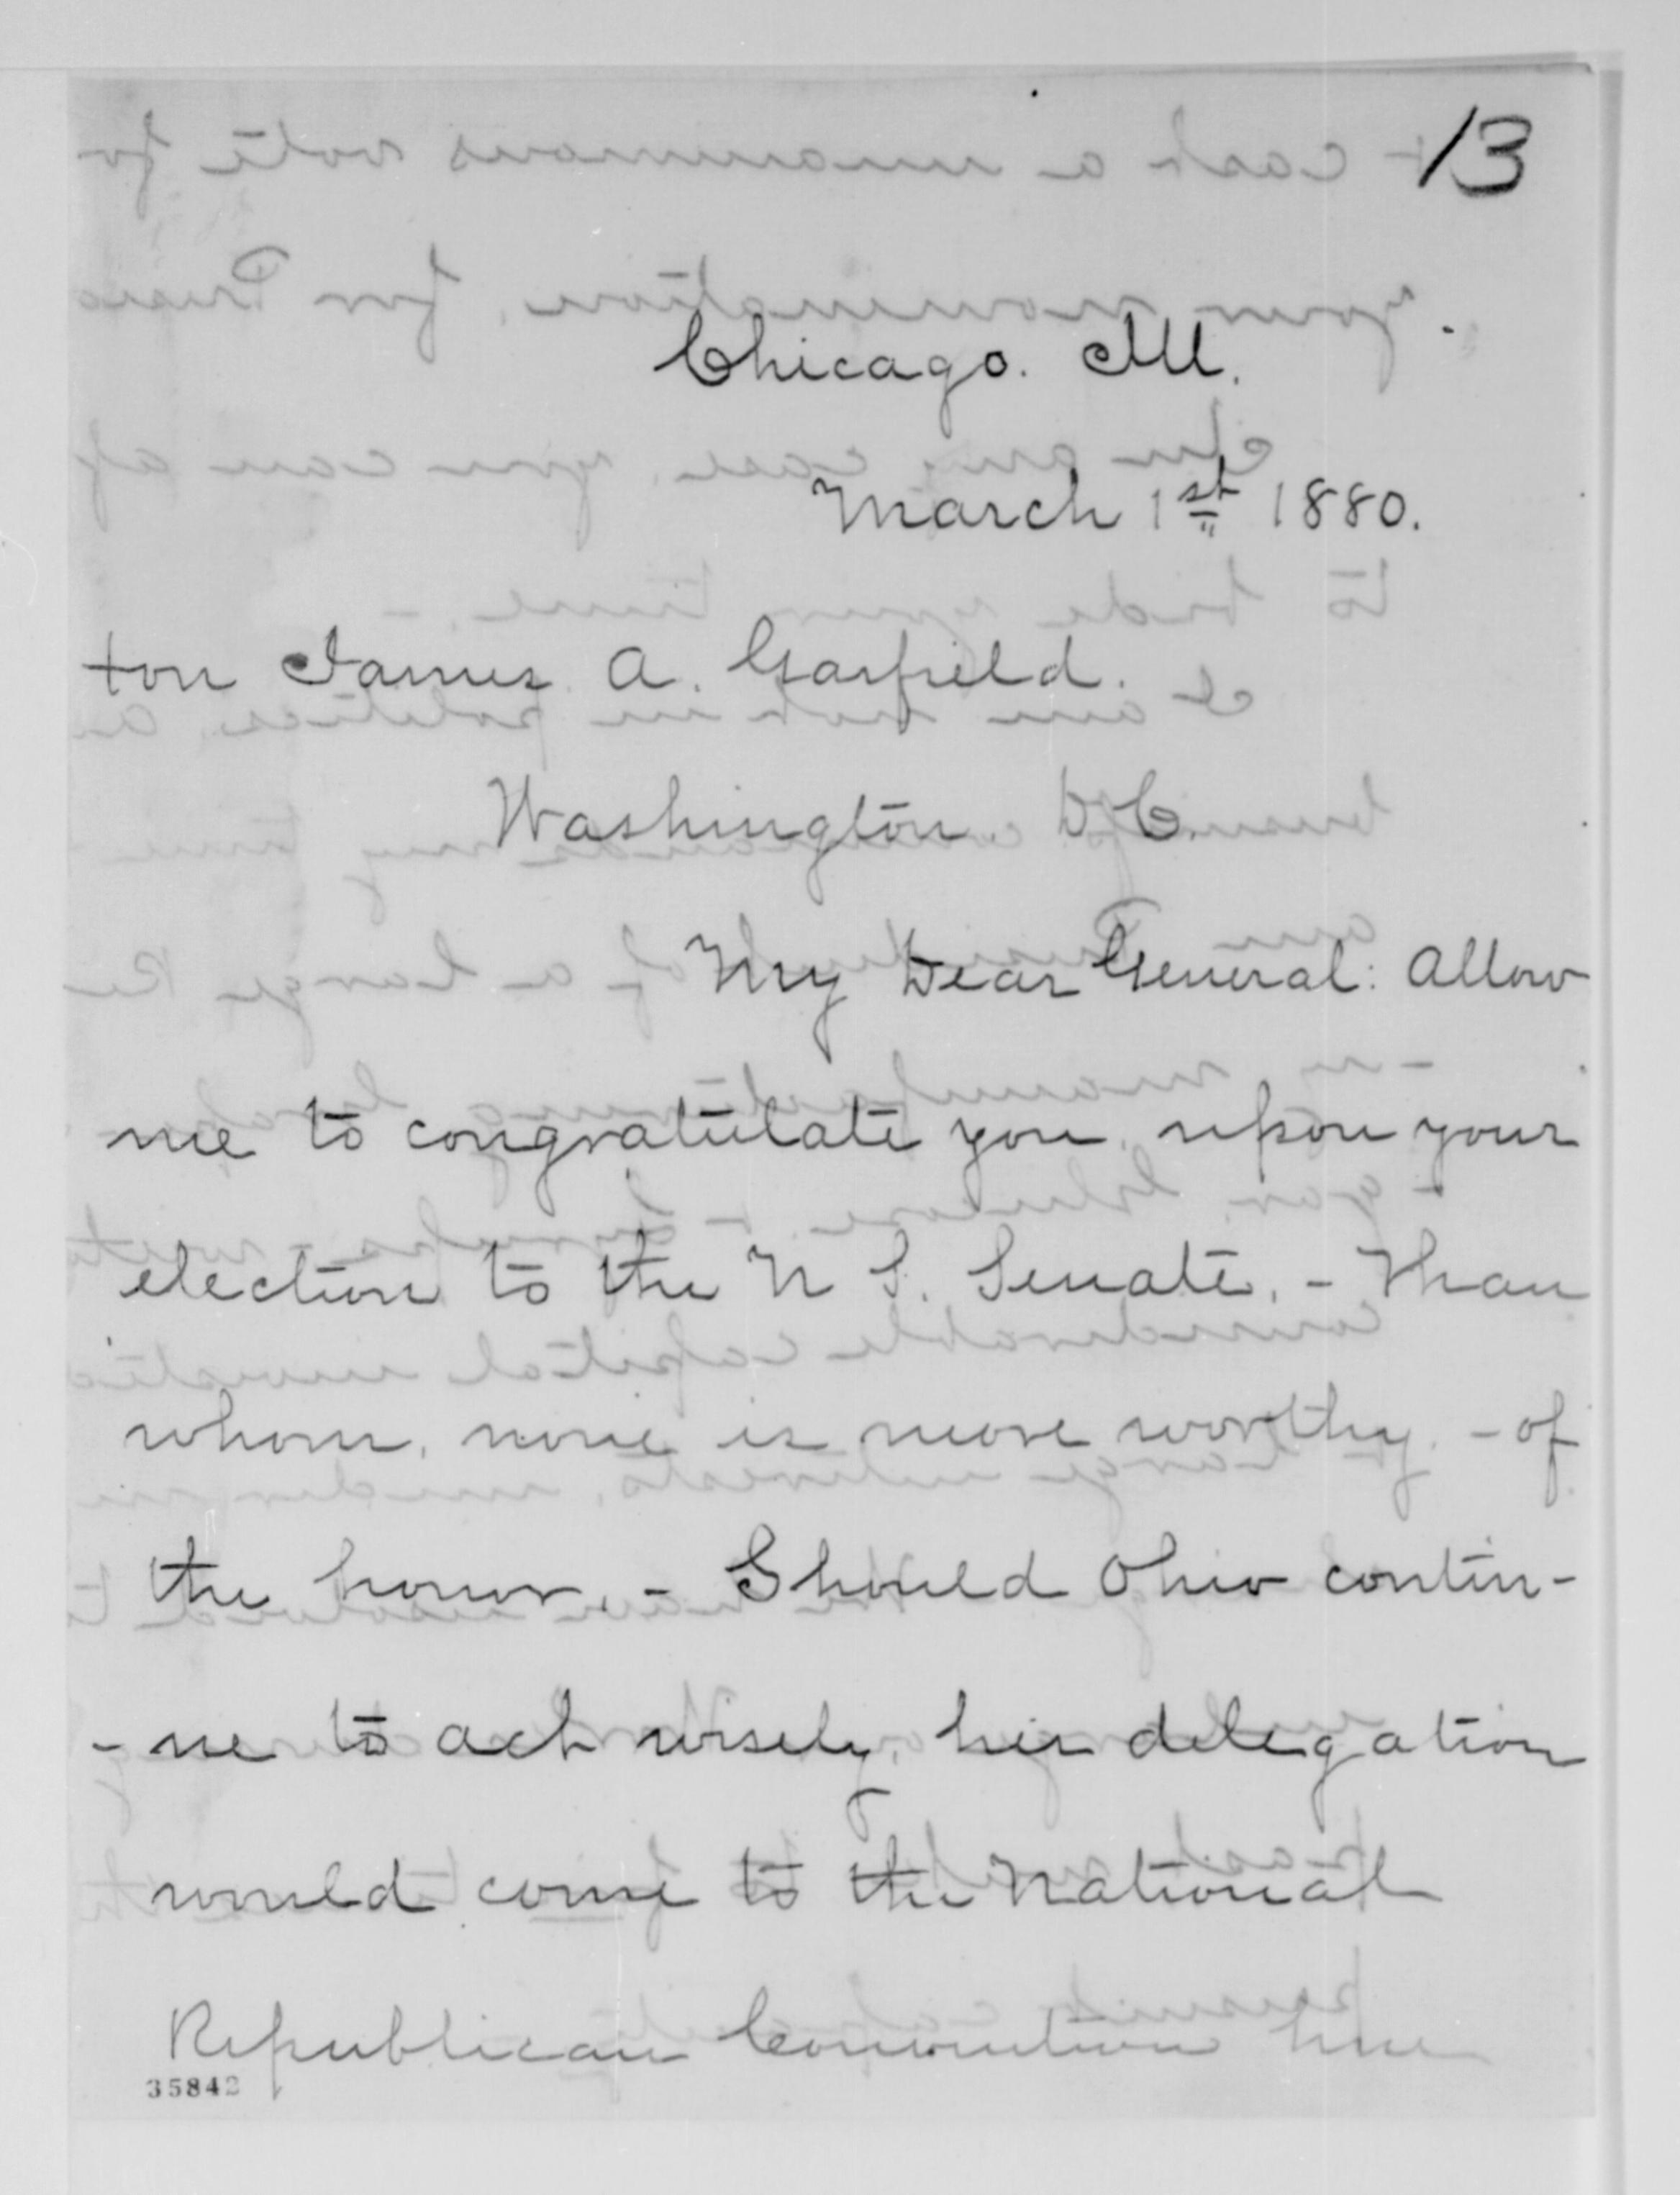 13
Chicago. Ill.
March 1st 1880.
Hon James A. Garfield.
Washington D.C.
My Dear General: Allow
me to congratulate you upon your
election to the U S. Senate. - Than
whom, none is more worthy. - of
the honor. - Should Ohio contin-
- ue to act wisely, her delegation
would come to the National
Republican Convention here
35842